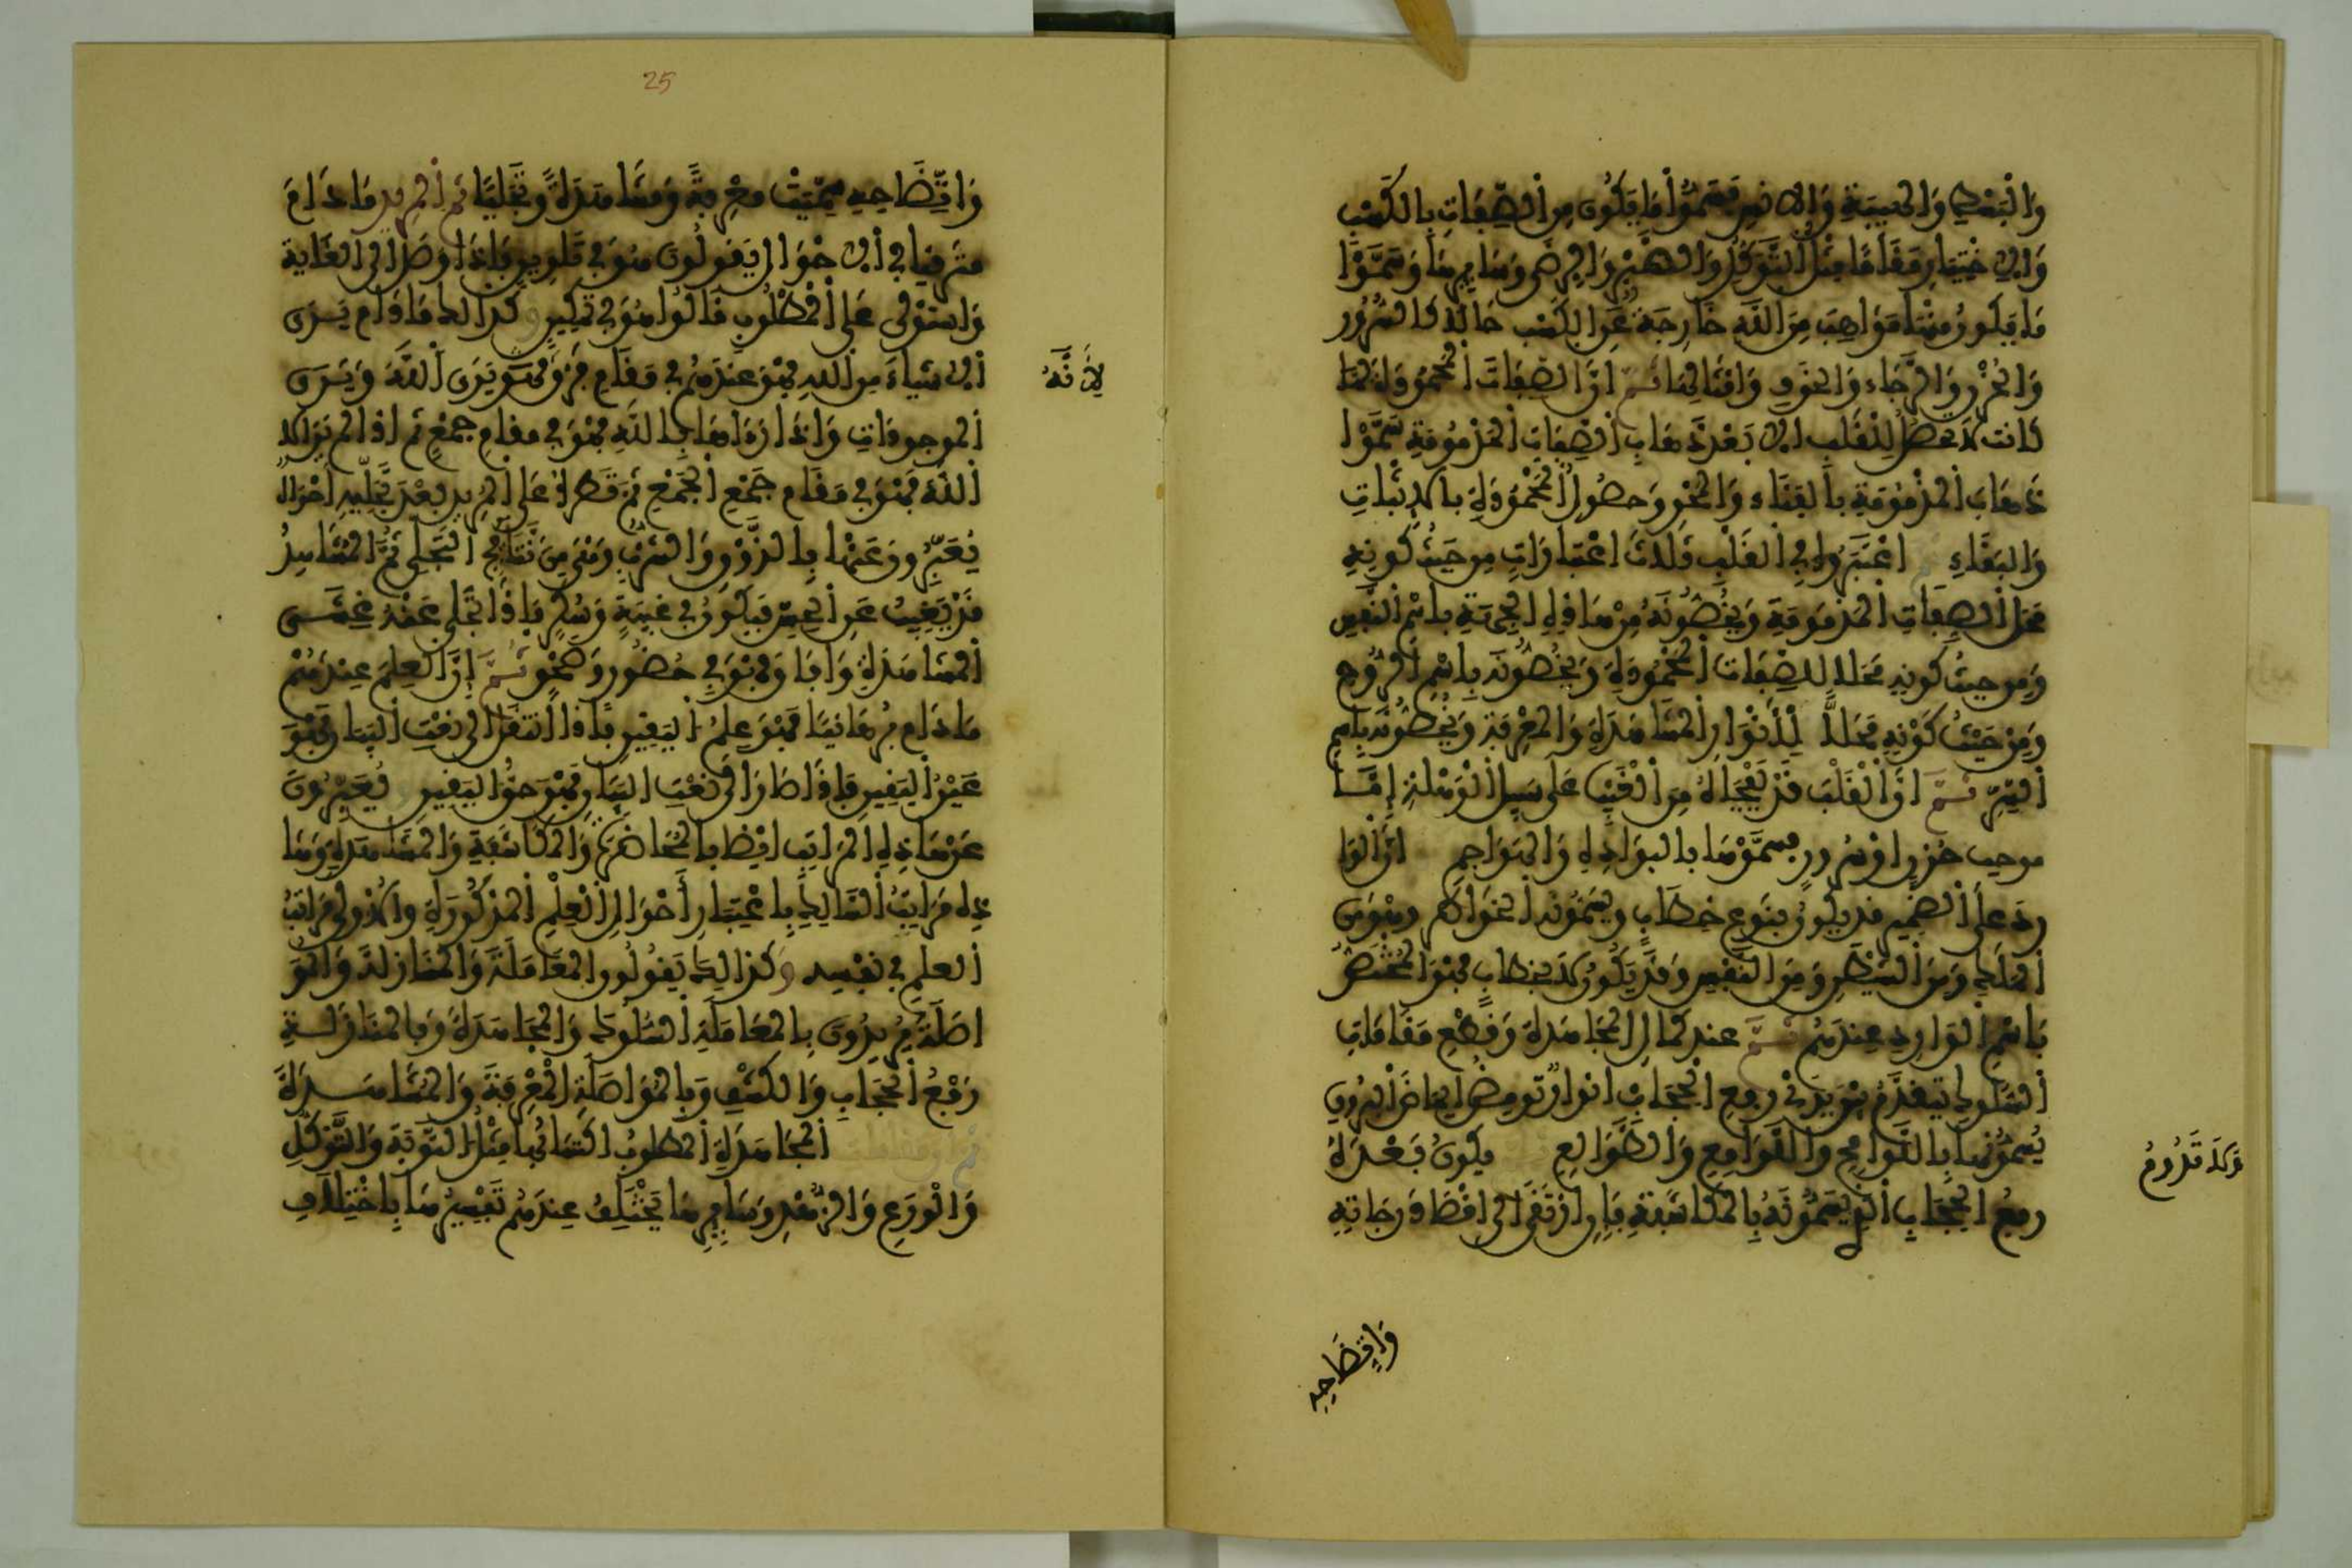 وَالْبَسْطِ وَالْهَيْبَةِ وَالانسِ فَسَمَّوْا مَا يَكُونُ مِنَ الصِّفَاتِ بِالكَسْبِ
وَالاخْتِيَارِ مَقَامًا مِثْلُ التَّوَكُّلِ وَالصَّبْرِ وَالرِّضَى وَسَايِرِهَا وَسَمَّوْا
مَا يَكُونُ مِنْهَا مَوَاهِبَ مِنَ اللَّهِ خَارِجَةً عَنِ الكَسْبِ حَالًا كَالسُّرُورِ
وَالْحُزْنِ وَالرَّجَاءِ وَالْخَوْفِ وَامْثَالِهَا ثُمَّ إِنَّ الصِّفَاتِ الْمَحْمُودَةَ لَمَّا
كَانَتْ لَا تَحْصُلُ لِلْقَلْبِ الَّا بَعْدَ ذَهَابِ الصِّفَاتِ الْمَذْمُومَةِ سَمَّوْا
ذَهَابَ الْمَذْمُومَةِ بِالْفَنَاءِ وَالْمَحْوِ وَحُصُولَ الْمَحْمُودَةِ بِالاثْبَاتِ
وَالْبَقَاءِ ثم اعْتَبَرُوا فِي الْقَلْبِ ثَلَاثَ اعْتِبَارَاتٍ مِنْ حَيْثُ كَوْنِهِ
مَحَلَّ الصِّفَاتِ الْمَذْمُومَةِ وَيَخُصُّونَهُ مِنْ هَاذِهِ الْحَيْثِيَّةِ بِاسْمِ النَّفْسِ
وَمِنْ حَيْثُ كَوْنِهِ مَحَلًّا لِلصِّفَاتِ الْمَحْمُودَةِ وَيَخُصُّونَهُ بِاسْمِ الرُّوحِ
وَمِنْ حَيْثُ كَوْنِهِ مَحَلًّا لِلْأَنْوَارِ الْمُشَاهَدَةِ وَالْمَعْرِفَةِ وَيَخُصُّونَهُ بِاسْمِ
السِّرِّ ثُمَّ انَّ الْقَلْبَ قَدْ يَفْجَاهُ مِنَ الْغَيْبِ عَلَى سَبِيلِ الْوَهْلَةِ إِمَّا
موجب حُزْنٍ اوْ سُرُورٍ فَسَمَّوْهَا بِالبَوَادِهِ وَالْهَوَاجِمِ انَّ الْوَا
رِدَ عَلَى الضَّمِيرِ قَدْ يَكُونُ بِنَوْعِ خِطَابٍ وَيُسَمُّونَهُ الْخَوَاطِرَ وَهْوَ مِنَ
الْمَلَكِ وَمِنَ الشَّيْطَانِ وَمِنَ النَّفْسِ وَقَدْ يَكُونُ لَا بِخِطَابٍ فَهْوَ الْمُخْتَصُّ
بِاسْمِ الوَارِدِ عِنْدَهُمْ ثُمَّ عِنْدَ كَمَالِ الْمُجَاهَدَةِ وَقَطْعِ مَقَامَاتِ
السُّلُوكِ يَتَقَدَّمُ بَيْنَ يَدَيْ رَفْعِ الْحِجَابِ انْوَارٌ تُومِضُ ايماضَ الْبُرُوقِ
يُسَمُّونَهَا بِاللَّوَايِحِ وَاللَّوَامِعِ وَالطَّوَالِعِ يَكُونُ بَعْدَهُ
رَفْعُ الْحِجَابِ الَّذِي يُسَمُّونَهُ بِالْمُكَاشَفَةِ فَإِنِ ارْتَقَى الَى اقْصَا دَرَجَاتِهِ
وَاتِّضَاحِهِ
وَاتِّضَاحِهِ سُمِّيَتْ مَعْرِفَةً وَمُشَاهَدَةً وَتَجَلِّيًا ثم المريد مَا دَامَ
مُتَرَقِّيًا فِي الاحْوَالِ يَقُولُونَ هُوَ فِي تَلْوِينٍ فَإِذَا وَصَلَ الَى الْغَايَةِ
وَاسْتَوْلَى عَلَى الْمَطْلُوبِ قَالُوا هُوَ فِي تَمْكِينٍ وكذالك مَا دَامَ يَرَى
الاشْيَاءَ مِنَ اللَّهِ فَهْوَ عِنْدَهُمْ فِي مَقَامِ فَرْقٍ فَهْوَ يَرَى اللَّهَ وَيَرَى
لِأَنَّهُ
الْمَوجُودَاتِ وَاذَا رَءَاهَا بِاللَّهِ فَهْوَ فِي مَقَامِ جَمْعٍ ثم اذَا لَمْ يَرَ الَّا
اللَّهَ فَهْوَ فِي مَقَامِ جَمْعِ الْجَمْعِ ثم تَطْرَأُ عَلَى الْمُرِيدِ بَعْدَ تَجَلِّيهِ احْوَالٌ
يُعَبِّرُونَ عَنْهَا بِالذَّوْقِ وَالشُّرْبِ وَهْيَ مِنْ نَتَايِجِ التَّجَلِّي ثُمَّ الْمُشَاهِدُ
قَدْ يَغِيبُ عَنِ الْحِسِّ فَيَكُونُ فِي غَيْبَةٍ وَسُكْرٍ فَإِذَا تَجَلَّى عَنْهُ غَشَى
الْمُشَاهَدَةِ وَافَاقَ فَهْوَ فِي حُضُورٍ وَصَحْوٍ ثُمَّ إِنَّ الْعِلْمَ عِنْدَهُمْ
مَا دَامَ بُرْهَانِيًّا فَهْوَ عِلْمُ الْيَقِينِ فَإِذَا انْتَقَلَ الَى نَعْتِ الْبَيَانِ فَهْوَ
عَيْنُ الْيَقِينِ فَإِذَا صَارَ الَى نَعْتِ الْعِيَانِ فَهْوَ حَقُّ الْيَقِينِ وَيُعَبِّرُونَ
عَنْ هَاذِهِ الْمَرَاتِبِ ايْضًا بِالْمُحَاضَرَةِ وَالْمُكَاشَفَةِ وَالْمُشَاهَدَةِ وَهَا
ذِهِ مَرَاتِبُ السَّالِكِ بِاعْتِبَارِ أَحْوَالِ الْعِلْمِ الْمَذْكُورَةِ والاولى مَرَاتِبُ
الْعِلْمِ فِي نَفْسِهِ وكذالك يَقُولُونَ الْمُعَامَلَةَ وَالْمُنَازَلَةَ وَالْمُوَ
اصَلَةَ يُرِيدُونَ بِالْمُعَامَلَةِ السُّلُوكَ وَالْمُجَاهَدَةَ وَبِالْمُنَازَلَةِ
رَفْعُ الْحِجَابِ وَالْكَشْفِ وَبِالْمُوَاصَلَةِ الْمَعْرِفَةَ وَالْمُشَاهَدَةَ
ثم ان مقامات الْمُجَاهَدَةِ الْمَطْلُوبُ اكْتِسَابُهَا مِثْلُ التَّوْبَةِ وَالتَّوَكُّلِ
وَالْوَرَعِ وَالزُّهْدِ وَسَايِرِهَا يَخْتَلِفُ عِنْدَهُمْ تَفْسِيرُهَا بِاخْتِلَافِ
25